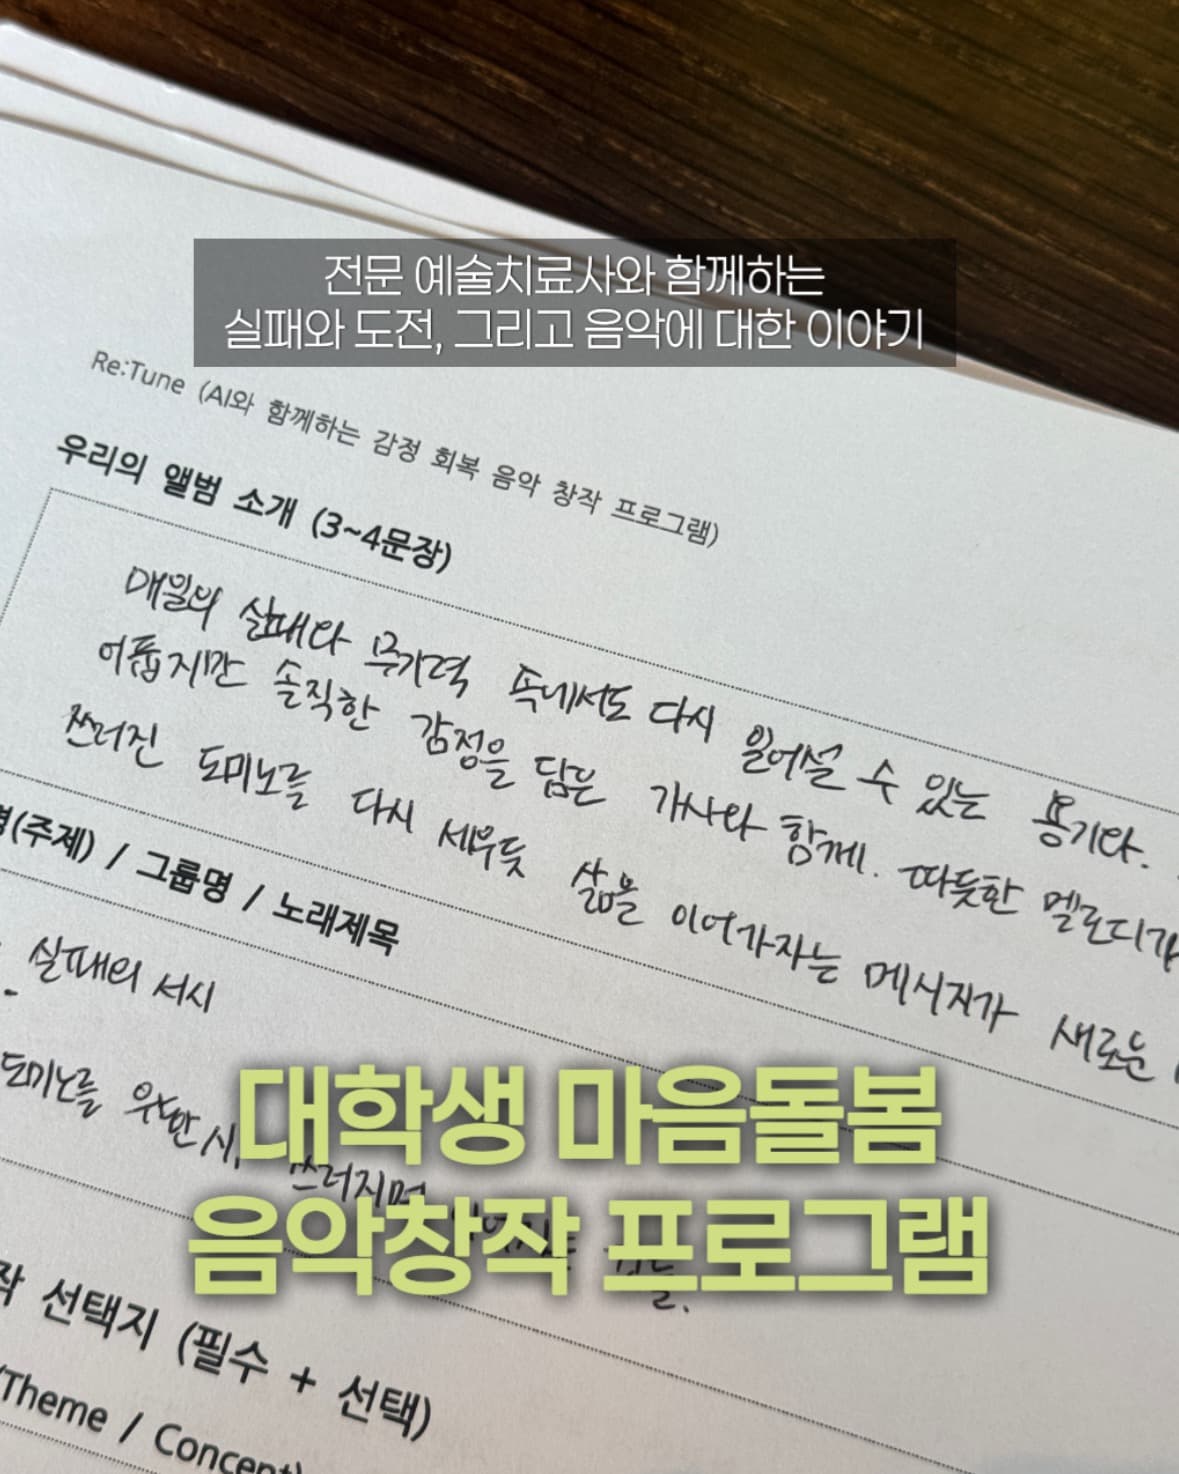 전문 예술치료사와 함께하는
실패와 도전, 그리고 음악에 대한 이야기
Re:Tune (AI와 함께하는 감정 회복 음악 창작 프로그램)
우리의 앨범 소개 (3~4문장)
매일의 실패와 무기력 속에서도 다시 일어설 수 있는 용기다.
어둡지만 솔직한 감정을 담은 가사와 함께. 따듯한 멜로디가
쓰러진 도미노를 다시 세우듯 삶을 이어가자는 메시지가 새로운
(주제) / 그룹명 / 노래제목
실패의 서시
도미노를 위한 시,
대학생 마음돌봄
음악창작 프로그램
작 선택지 (필수 + 선택)
(Theme / Concept)